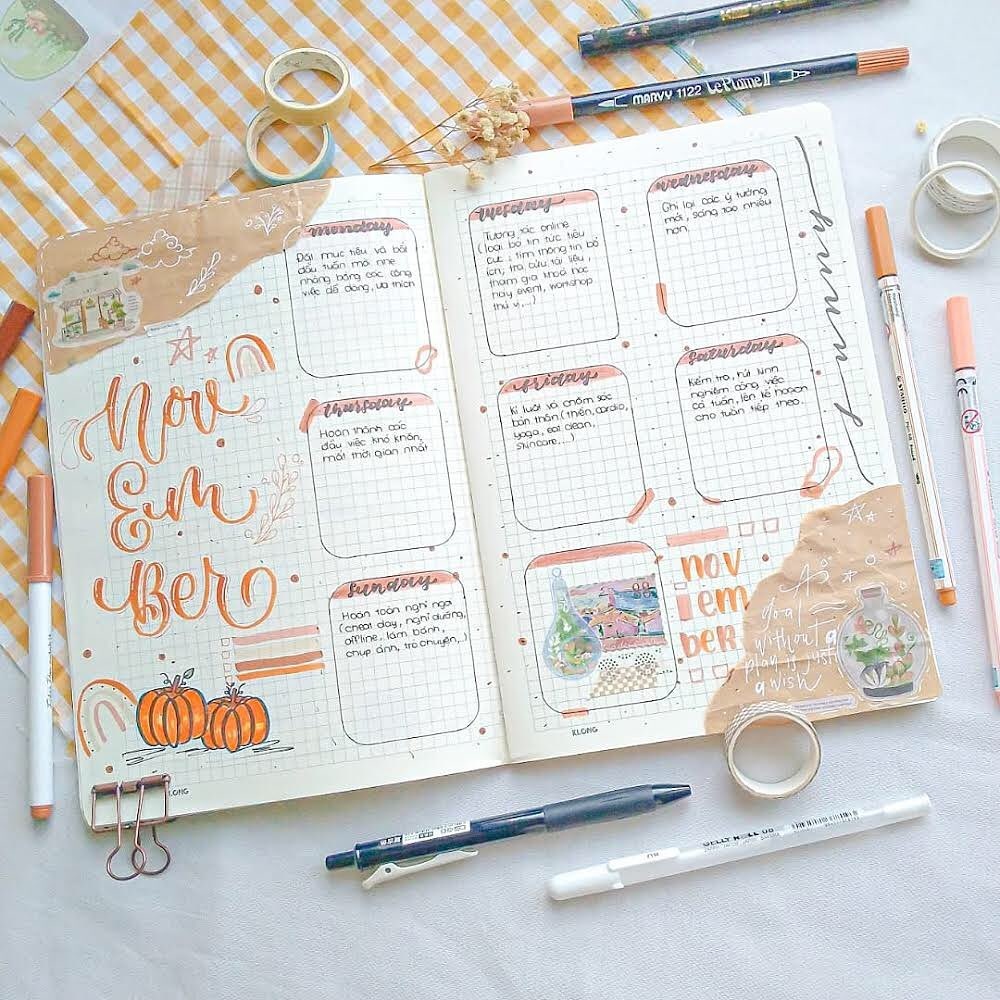 Nov
Em
Ber
monday
Đặt mục tiêu và bắt
đầu tuần mới nhẹ
nhàng bằng các công
việc dễ dàng, ưa thích
thursday
Hoàn thành các
đầu việc khó khăn,
mất thời gian nhất
sunday
Hoàn toàn nghỉ ngơi
(cheat day, nghỉ dưỡng,
offline, làm bánh,
chụp ảnh, trò chuyện,..)
LONG
tuesday
Tương tác online
(loại bỏ tin tức tiêu
cực, tìm thông tin bổ
ích, tra cứu tài liệu,
tham gia khoá học
hay event, workshop
thú vị,...)
wednesday
Ghi lại các ý tưởng
mới, sáng tạo nhiều
hơn.
friday
Kỉ luật và chăm sóc
bản thân (thiền, cardio,
yoga, eat clean,
skincare,...)
saturday
Kiểm tra, rút kinh
nghiệm công việc
cả tuần, lên kế hoạch
cho tuần tiếp theo.
nov
em
ber
A
goal
without a
plan is just
a wish
KLONG
MARVY 1122 Le Plume II
GELLY ROLL 08